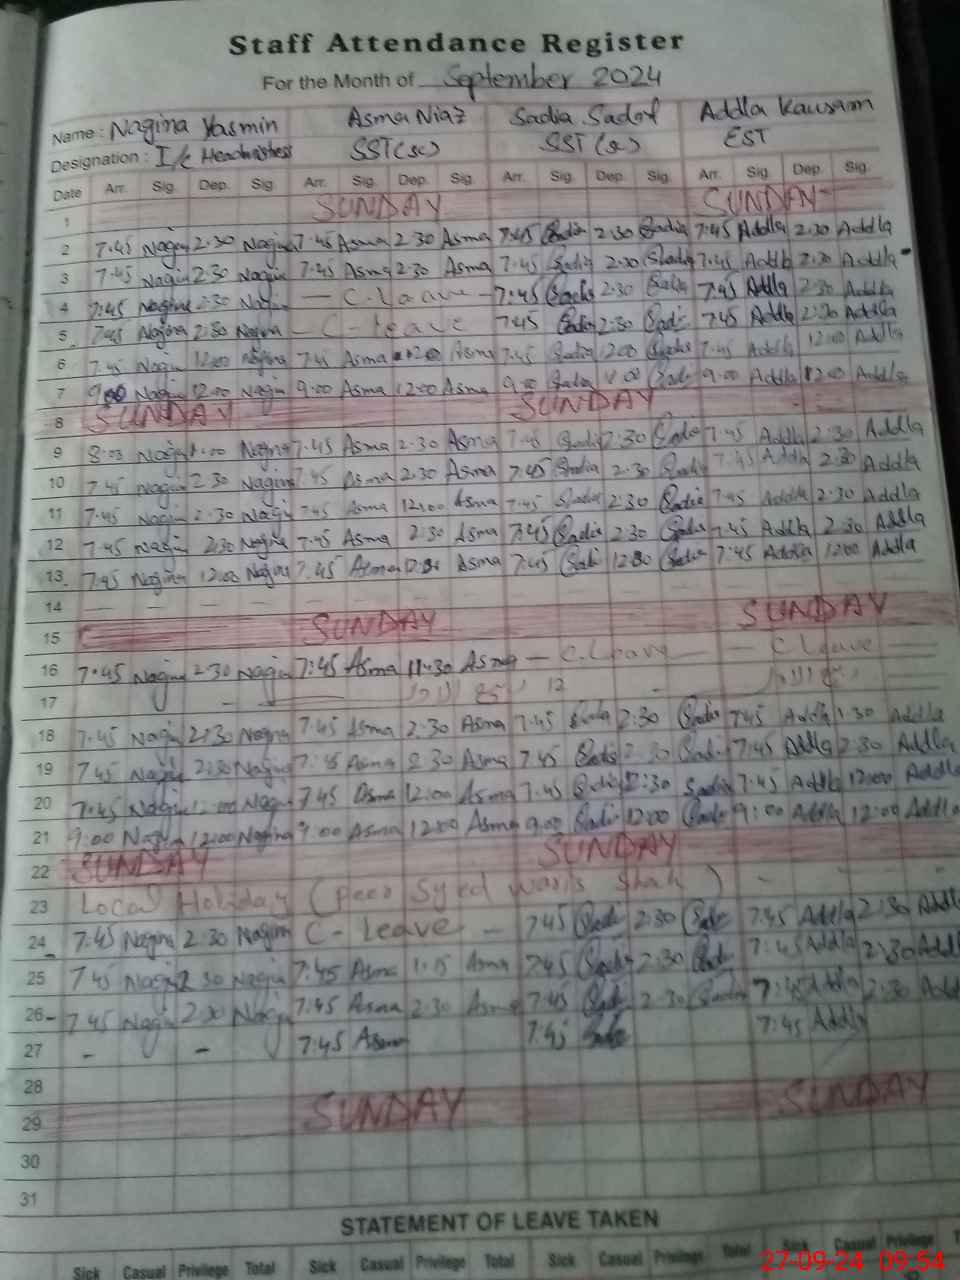 Staff Attendance Register
For the Month of September 2024
Name : Nagina Yasmin Asma Niaz Sadia Sadaf Addla Kausam
Designation : I/c Headmistress SST(sc) SST (sc) EST
Date Arr. Sig. Dep. Sig. Arr. Sig. Dep. Sig. Arr. Sig. Dep. Sig. Arr. Sig. Dep. Sig.
1 SUNDAY SUNDAY
2 7:45 Nagina 2:30 Nagina 7:45 Asma 2:30 Asma 7:45 Sadia 2:30 Sadia 7:45 Addla 2:30 Addla
3 7:45 Nagina 2:30 Nagina 7:45 Asma 2:30 Asma 7:45 Sadia 2:30 Sadia 7:45 Addla 2:30 Addla
4 7:45 Nagina 2:30 Nagina — C. Leave — 7:45 Sadia 2:30 Sadia 7:45 Addla 2:30 Addla
5 7:45 Nagina 2:30 Nagina — C - Leave 7:45 Sadia 2:30 Sadia 7:45 Addla 2:30 Addla
6 7:45 Nagina 12:00 Nagina 7:45 Asma 12:00 Asma 7:45 Sadia 12:00 Sadia 7:45 Addla 12:00 Addla
7 9:00 Nagina 12:00 Nagina 9:00 Asma 12:00 Asma 9:00 Sadia Sadia 9:00 Addla 12:00 Addla
8 SUNDAY SUNDAY
9 8:03 Nagina Nagina 7:45 Asma 2:30 Asma 7:45 Sadia 2:30 Sadia 7:45 Addla 2:30 Addla
10 7:45 Nagina 2:30 Nagina 7:45 Asma 2:30 Asma 7:45 Sadia 2:30 Sadia 7:45 Addla 2:30 Addla
11 7:45 Nagina 2:30 Nagina 7:45 Asma 12:00 Asma 7:45 Sadia 2:30 Sadia 7:45 Addla 2:30 Addla
12 7:45 Nagina 2:30 Nagina 7:45 Asma 2:30 Asma 7:45 Sadia 2:30 Sadia 7:45 Addla 2:30 Addla
13 7:45 Nagina 12:00 Nagina 7:45 Asma Asma 7:45 Sadia Sadia 7:45 Addla 12:00 Addla
14
15 SUNDAY SUNDAY
16 7:45 Nagina 2:30 Nagina 7:45 Asma 11:30 Asma — C. Leave — — C Leave
17 12
18 7:45 Nagina 2:30 Nagina 7:45 Asma 2:30 Asma 7:45 Sadia 2:30 Sadia 7:45 Addla 1:30 Addla
19 7:45 Nagina 2:30 Nagina 7:45 Asma 2:30 Asma 7:45 Sadia 2:30 Sadia 7:45 Addla 2:30 Addla
20 7:45 Nagina 12:00 Nagina 7:45 Asma 12:00 Asma 7:45 Sadia 2:30 Sadia 7:45 Addla 12:00 Addla
21 9:00 Nagina 12:00 Nagina 9:00 Asma 12:00 Asma 9:00 Sadia 12:00 Sadia 9:00 Addla 12:00 Addla
22 SUNDAY SUNDAY
23 Local Holiday (Peer Syed Waris Shah)
24 7:45 Nagina 2:30 Nagina C - Leave — 7:45 Sadia 2:30 Sadia 7:45 Addla 2:30 Addla
25 7:45 Nagina 2:30 Nagina 7:45 Asma 1:15 Asma 7:45 Sadia 2:30 Sadia 7:45 Addla 2:30 Addla
26 7:45 Nagina 2:30 Nagina 7:45 Asma 2:30 Asma 7:45 Sadia 2:30 Sadia 7:45 Addla 2:30 Addla
27 - - 7:45 Asma 7:45 Sadia 7:45 Addla
28
29 SUNDAY SUNDAY
30
31
STATEMENT OF LEAVE TAKEN
Sick Casual Privilege Total Sick Casual Privilege Total Sick Casual Privilege Total Sick Casual Privilege
27-09-24 09:54